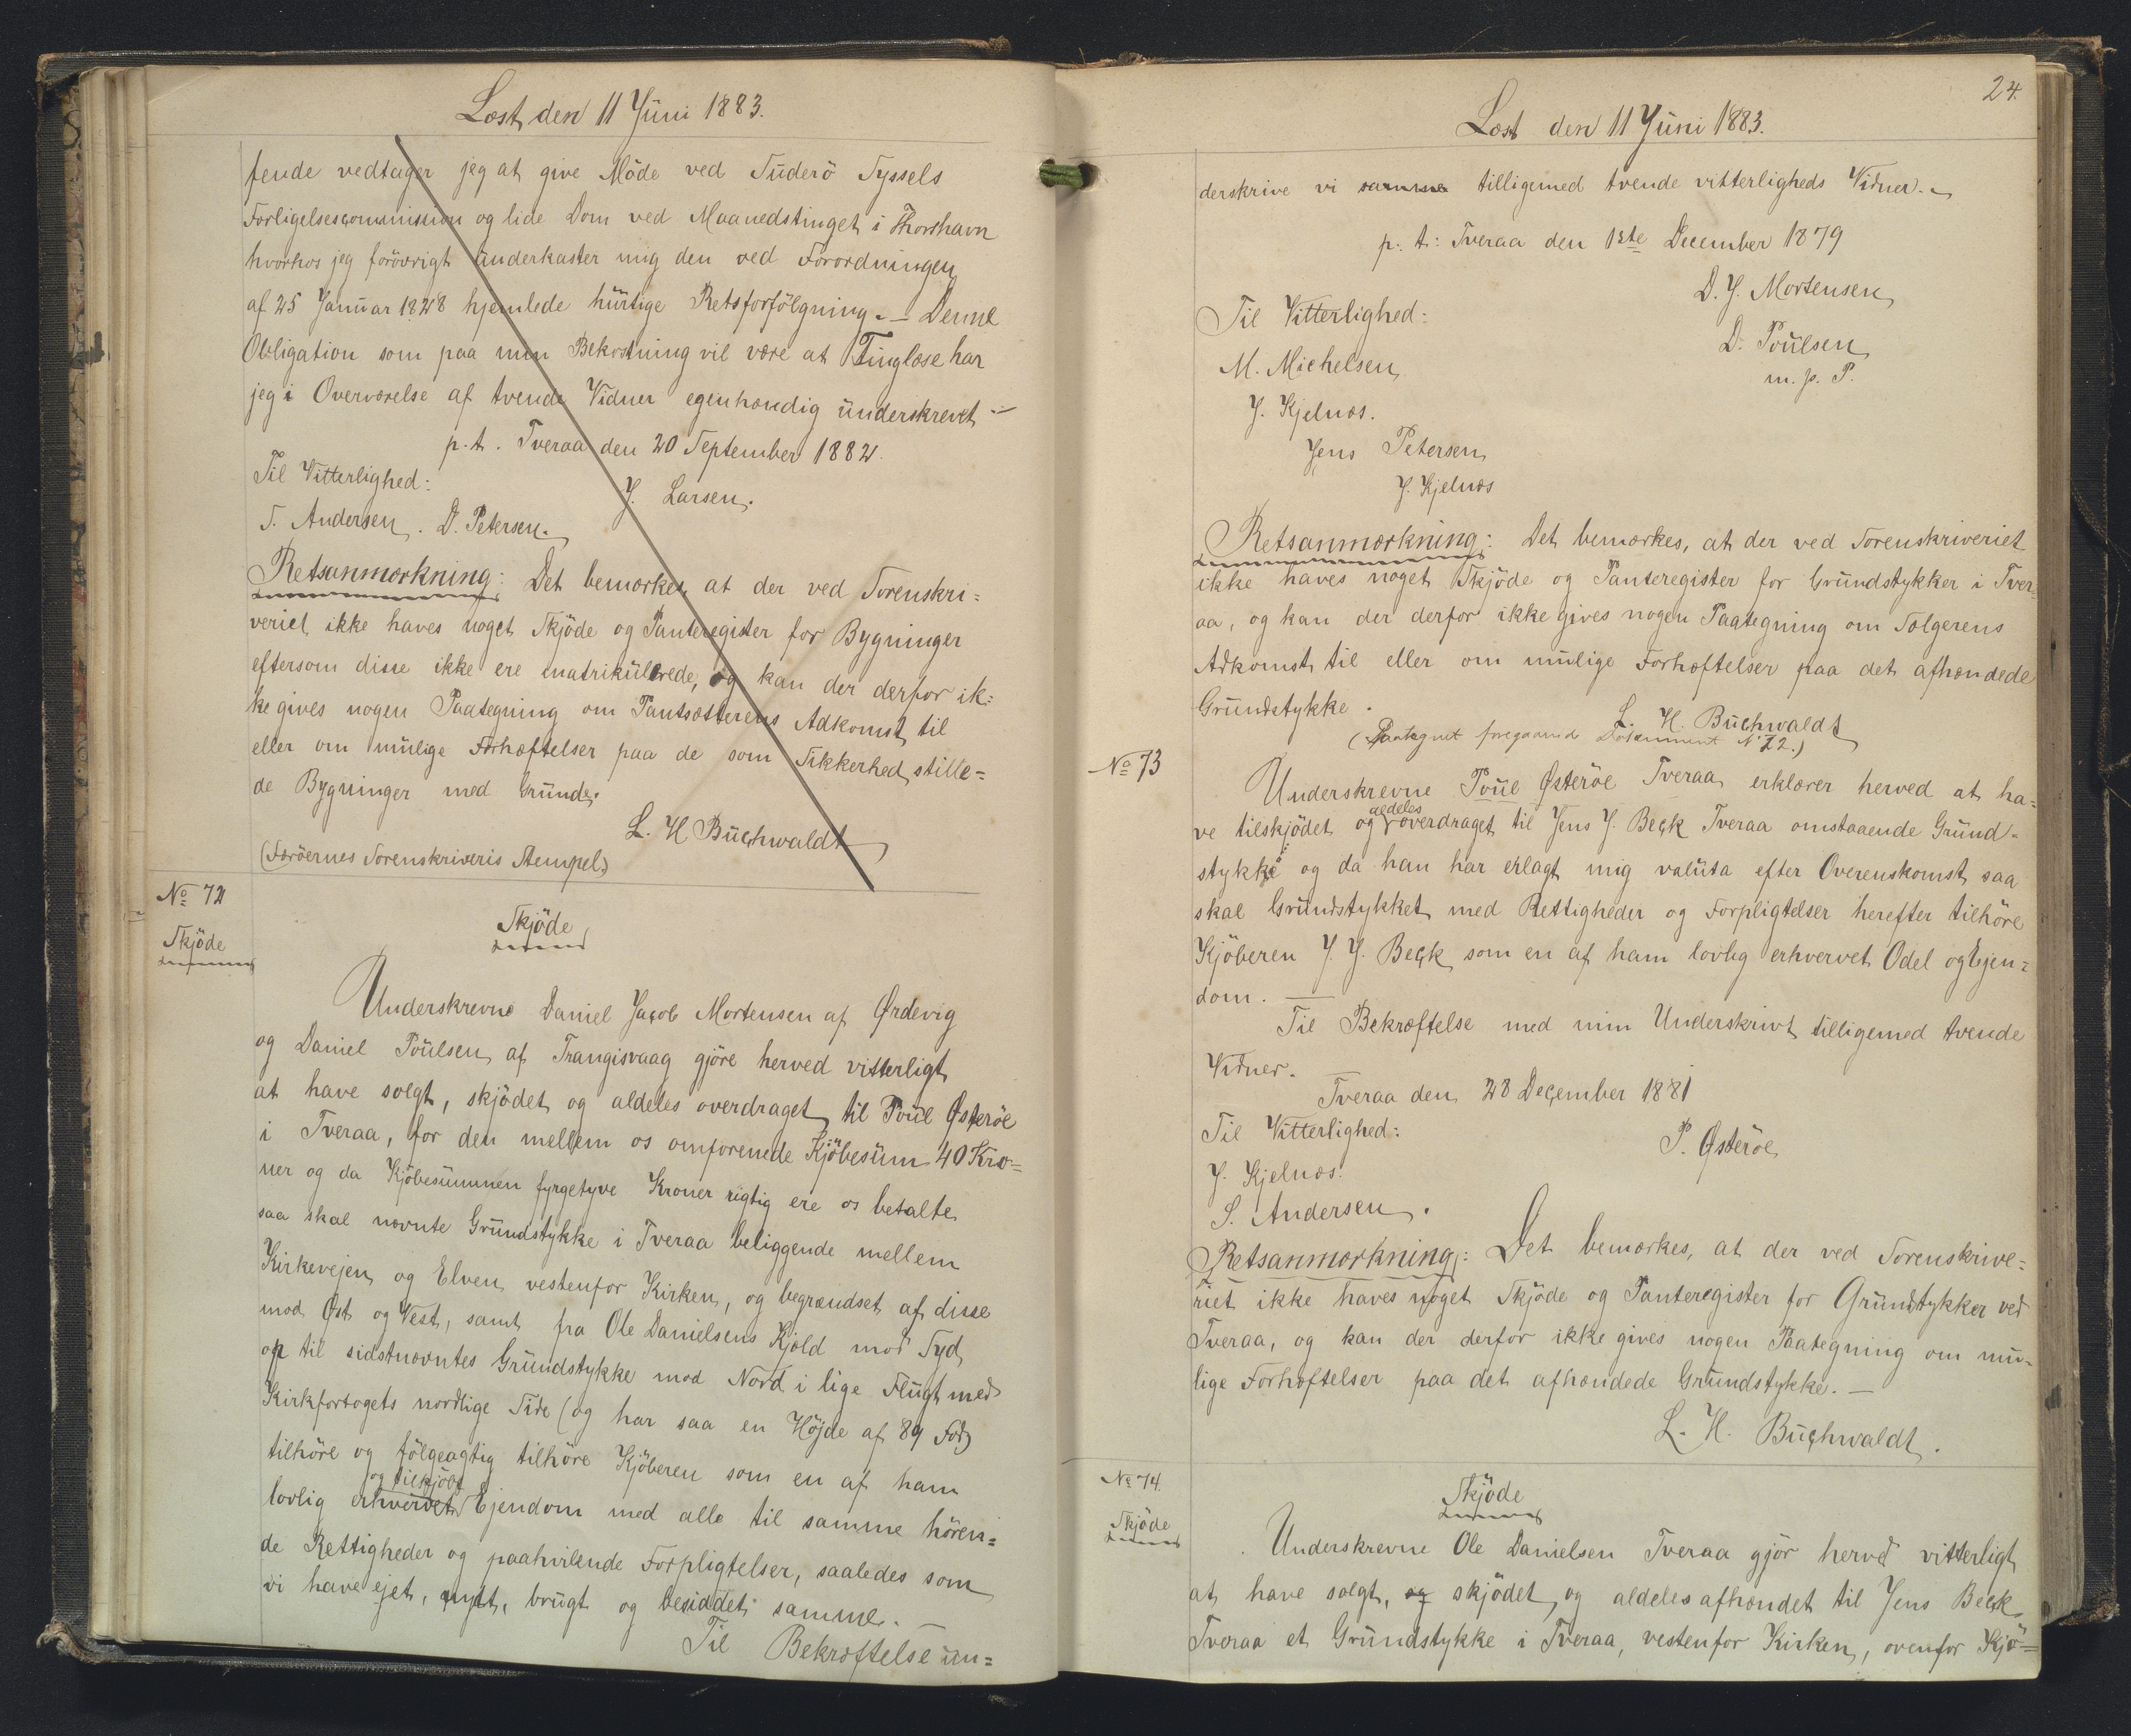 Læst den 11 Juni 1883.
fende vedtager jeg at give Möde ved Suderö Syssels
Forligelsescommission og lide Dom ved Maanedstinget i Thorshavn
hvorhos jeg forövrigt underkaster mig den ved Forordningen
af 25 Januar 1828 hjemlede hurtige Retsforfölgning. — Denne
Obligation som paa min Bekostning vil være at Tinglæse har
jeg i Overværelse af tvende Vidner egenhændig underskrevet —
p.t. Tveraa den 20 September 1882.
Til Vitterlighed:
J. Larsen.
S. Andersen. D. Petersen.
Retsanmærkning: Det bemærkes, at der ved Sorenskri=
veriet ikke haves noget Skjöde og Panteregister for Bygninger
eftersom disse ikke ere matrikulerede, og kan der derfor ik=
ke gives nogen Paategning om Pantsætterens Adkomst til
eller om mulige Forhæftelser paa de som Sikkerhed stille=
de Bygninger med Grunde.
L. H. Buchwaldt
(Færöernes Sorenskriveris Stempel)
No 72
Skjöde
Skjöde
Underskrevne Daniel Jacob Mortensen af Ørdevig
og Daniel Poulsen af Trangisvaag gjöre herved vitterligt
at have solgt, skjödet og aldeles overdraget til Poul Østeröe
i Tveraa, for den mellem os omforenede Kjöbesum 40 Kro=
ner og da Kjöbesummen fyrgetyve Kroner rigtig ere os betalte
saa skal nævnte Grundstykke i Tveraa beliggende mellem
Kirkevejen og Elven vestenfor Kirken, og begrændset af disse
mod Øst og Vest, samt fra Ole Danielsens Kjöld mod Syd
op til sidstnævntes Grundstykke mod Nord i lige Flugt med
Kirkfortogets nordlige Side (og har saa en Höjde af 89 Fod)
tilhöre og fölgeagtig tilhöre Kjöberen som en af ham
og tilkjöbt
lovlig erhvervet Ejendom med alle til samme hören=
de Rettigheder og paahvilende Forpligtelser, saaledes som
vi have ejet, nytt, brugt og besiddet samme. —
Til Bekræftelse un=
24.
Læst den 11 Juni 1883.
derskrive vi samme tilligemed tvende vitterligheds Vidner. —
p. t: Tveraa den 1ste December 1879
D. J. Mortensen
Til Vitterlighed:
D. Poulsen
M. Michelsen
m. p. P.
J. Kjelnæs.
Jens Petersen
J. Kjelnæs
Retsanmærkning: Det bemærkes, at der ved Sorenskriveriet
ikke haves noget Skjöde og Panteregister for Grundstykker i Tver=
aa, og kan der derfor ikke gives nogen Paategning om Sælgerens
Adkomst til eller om mulige Forhæftelser paa det afhændede
Grundstykke.
L. H. Buchwaldt
(Paategnet foregaaende Dokument No 72.)
No 73
Underskrevne Poul Østeröe Tveraa erklærer herved at ha=
aldeles
ve tilskjödet og overdraget til Jens J. Beck Tveraa omstaaende Grund-
stykke og da han har erlagt mig valuta efter Overenskomst saa
skal Grundstykket med Rettigheder og Forpligtelser herefter tilhöre
Kjöberen J. J. Beck som en af ham lovlig erhvervet Odel og Ejen=
dom. —
Til Bekræftelse med min Underskrivt tilligemed tvende
Vidner.
Tveraa den 28 December 1881
Til Vitterlighed:
P. Østeröe
J. Kjelnæs.
S. Andersen.
Retsanmærkning: Det bemærkes, at der ved Sorenskrive=
riet ikke haves noget Skjöde og Panteregister for Grundstykker ved
Tveraa, og kan der derfor ikke gives nogen Paategning om mu=
lige Forhæftelser paa det afhændede Grundstykke. —
L. H. Buchwaldt.
No 74.
Skjöde
Skjöde
Underskrevne Ole Danielsen Tveraa gjör herved vitterligt
at have solgt, og skjödet og aldeles afhændet til Jens Beck
Tveraa et Grundstykke i Tveraa, vestenfor Kirken, ovenfor Kjö=